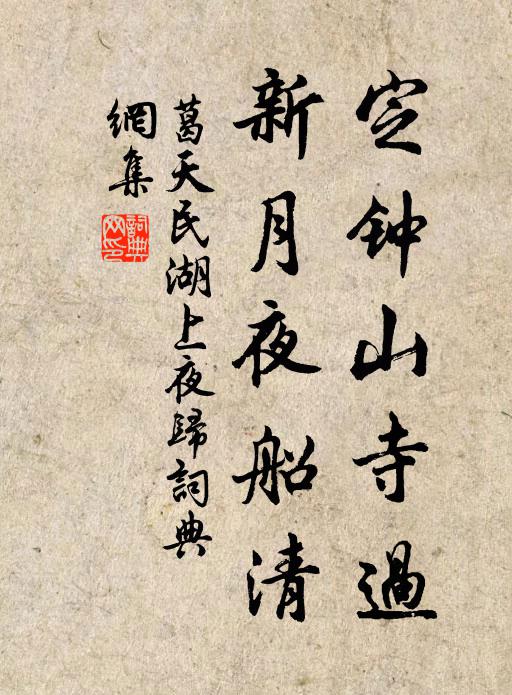 定钟山寺過
新月夜船清
葛天民湖上夜歸詞典
網集
詞典
网印